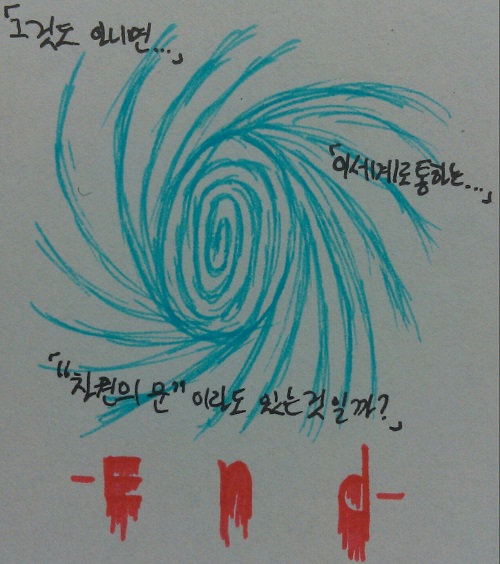 「그것도 아니면...」
「이세계로 통하는...」
「"차원의 문" 이라도 있는것일까?」
-End-